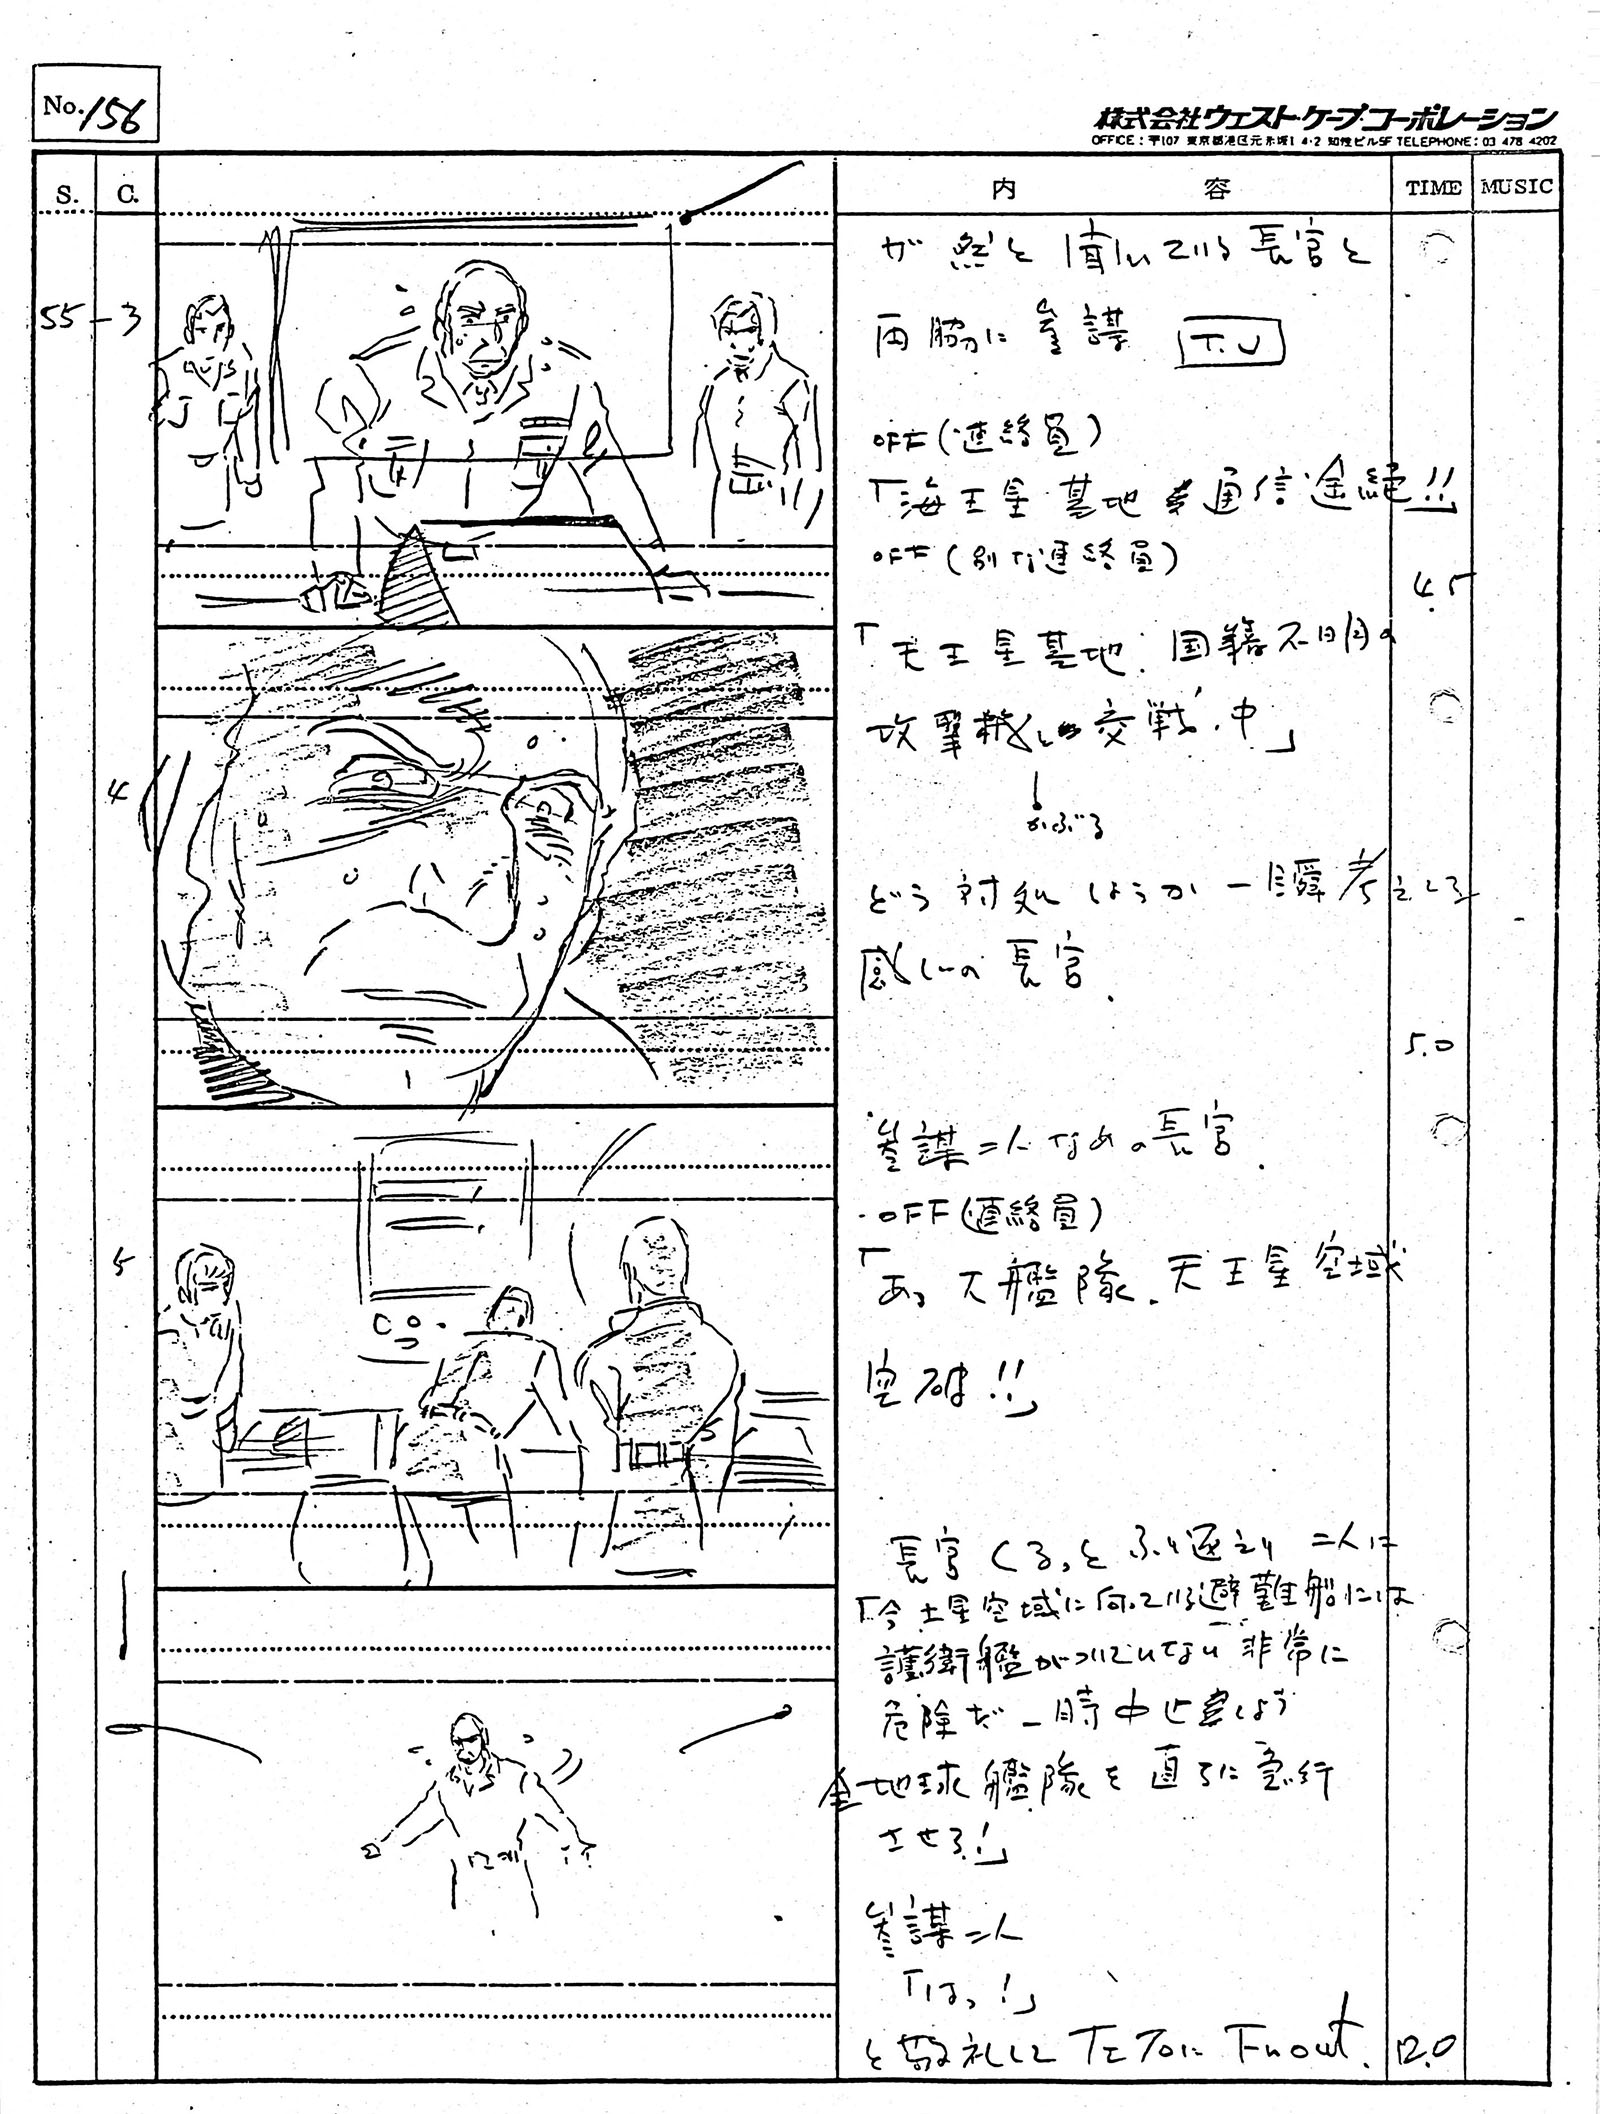 No. 156
株式会社ウェスト・ケープ・コーポレーション
OFFICE：〒107 東京都港区元赤坂1 4-2 知性ビル5F TELEPHONE：03 478 4202
S. C. 内容 TIME MUSIC
55-3
が然と聞いている長官と
両脇に参謀 T.U
OFF(連絡員)
「海王星基地 通信途絶!!」
OFF(別な連絡員)
4.5
「天王星基地、国籍不明の
攻撃機と交戦中」
かぶる
4
どう対処しようか一瞬考えてる
感じの長官.
5.0
参謀二人なめの長官.
OFF(連絡員)
5
「あっ大艦隊、天王星空域
突破!!」
長官くるっとふり返えり 二人に
「今土星空域に向っている避難船には
護衛艦がついていない 非常に
危険だ一時中止しよう
全地球艦隊を直ちに急行
させろ!」
参謀二人
「はっ!」
と敬礼して 下手に Fn out.
12.0